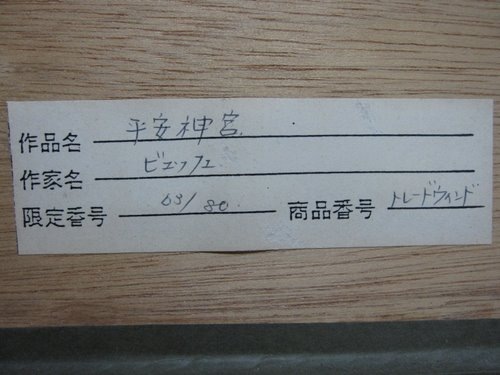 作品名 平安神宮.
作家名 ビュッフェ
限定番号 63/80 商品番号 トレードウィンド